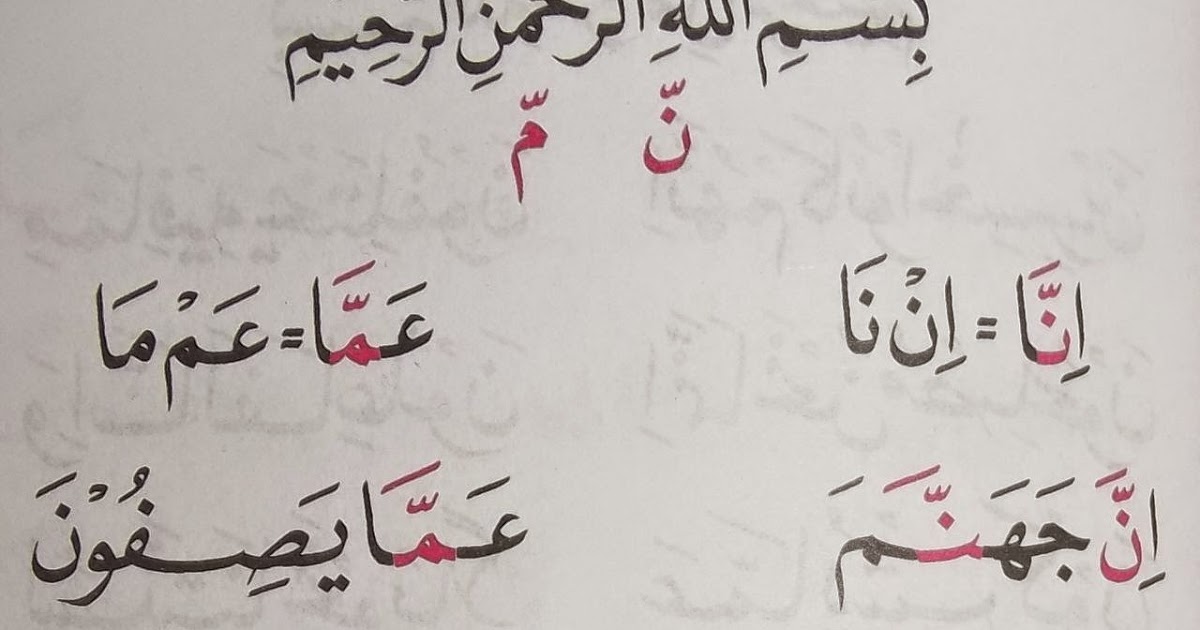 بِسْمِ اللهِ الرَّحْمٰنِ الرَّحِيْمِ
نّ مّ
اِنَّا = اِنْ نَا عَمَّا = عَمْ مَا
اِنَّ جَهَنَّمَ عَمَّا يَصِفُوْنَ